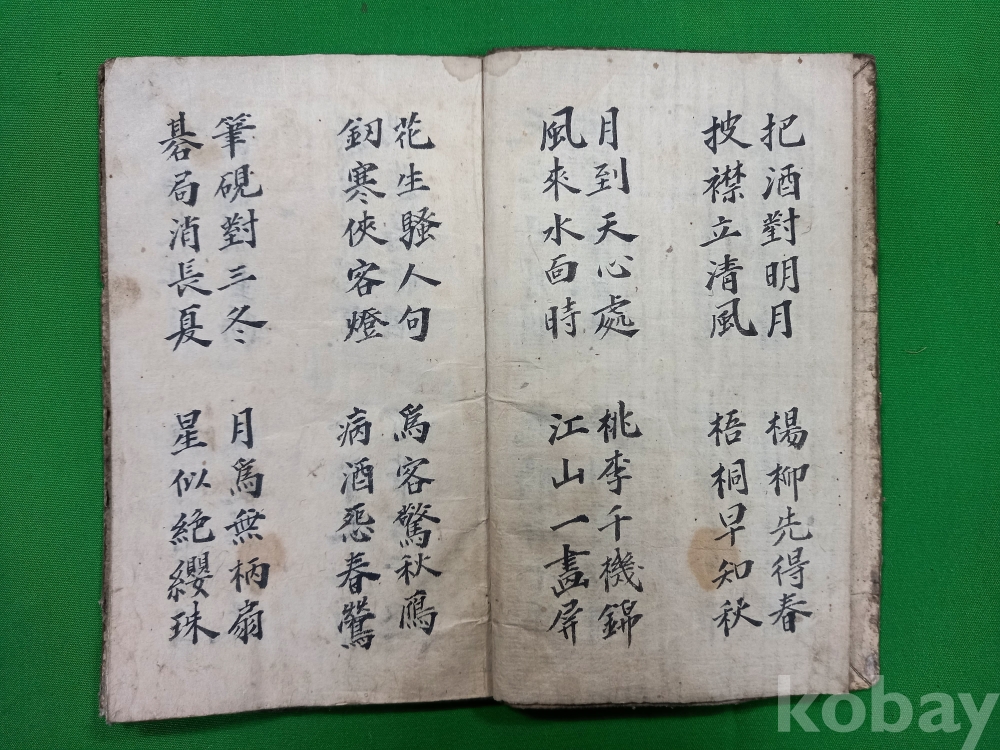 把酒對明月
披襟立清風
楊柳先得春
梧桐早知秋
月到天心處
風來水面時
桃李千機錦
江山一畫屏
花生騷人句
釰寒俠客燈
爲客驚秋鴈
病酒怨春鶯
筆硯對三冬
碁局消長夏
月爲無柄扇
星似絶纓珠
kobay